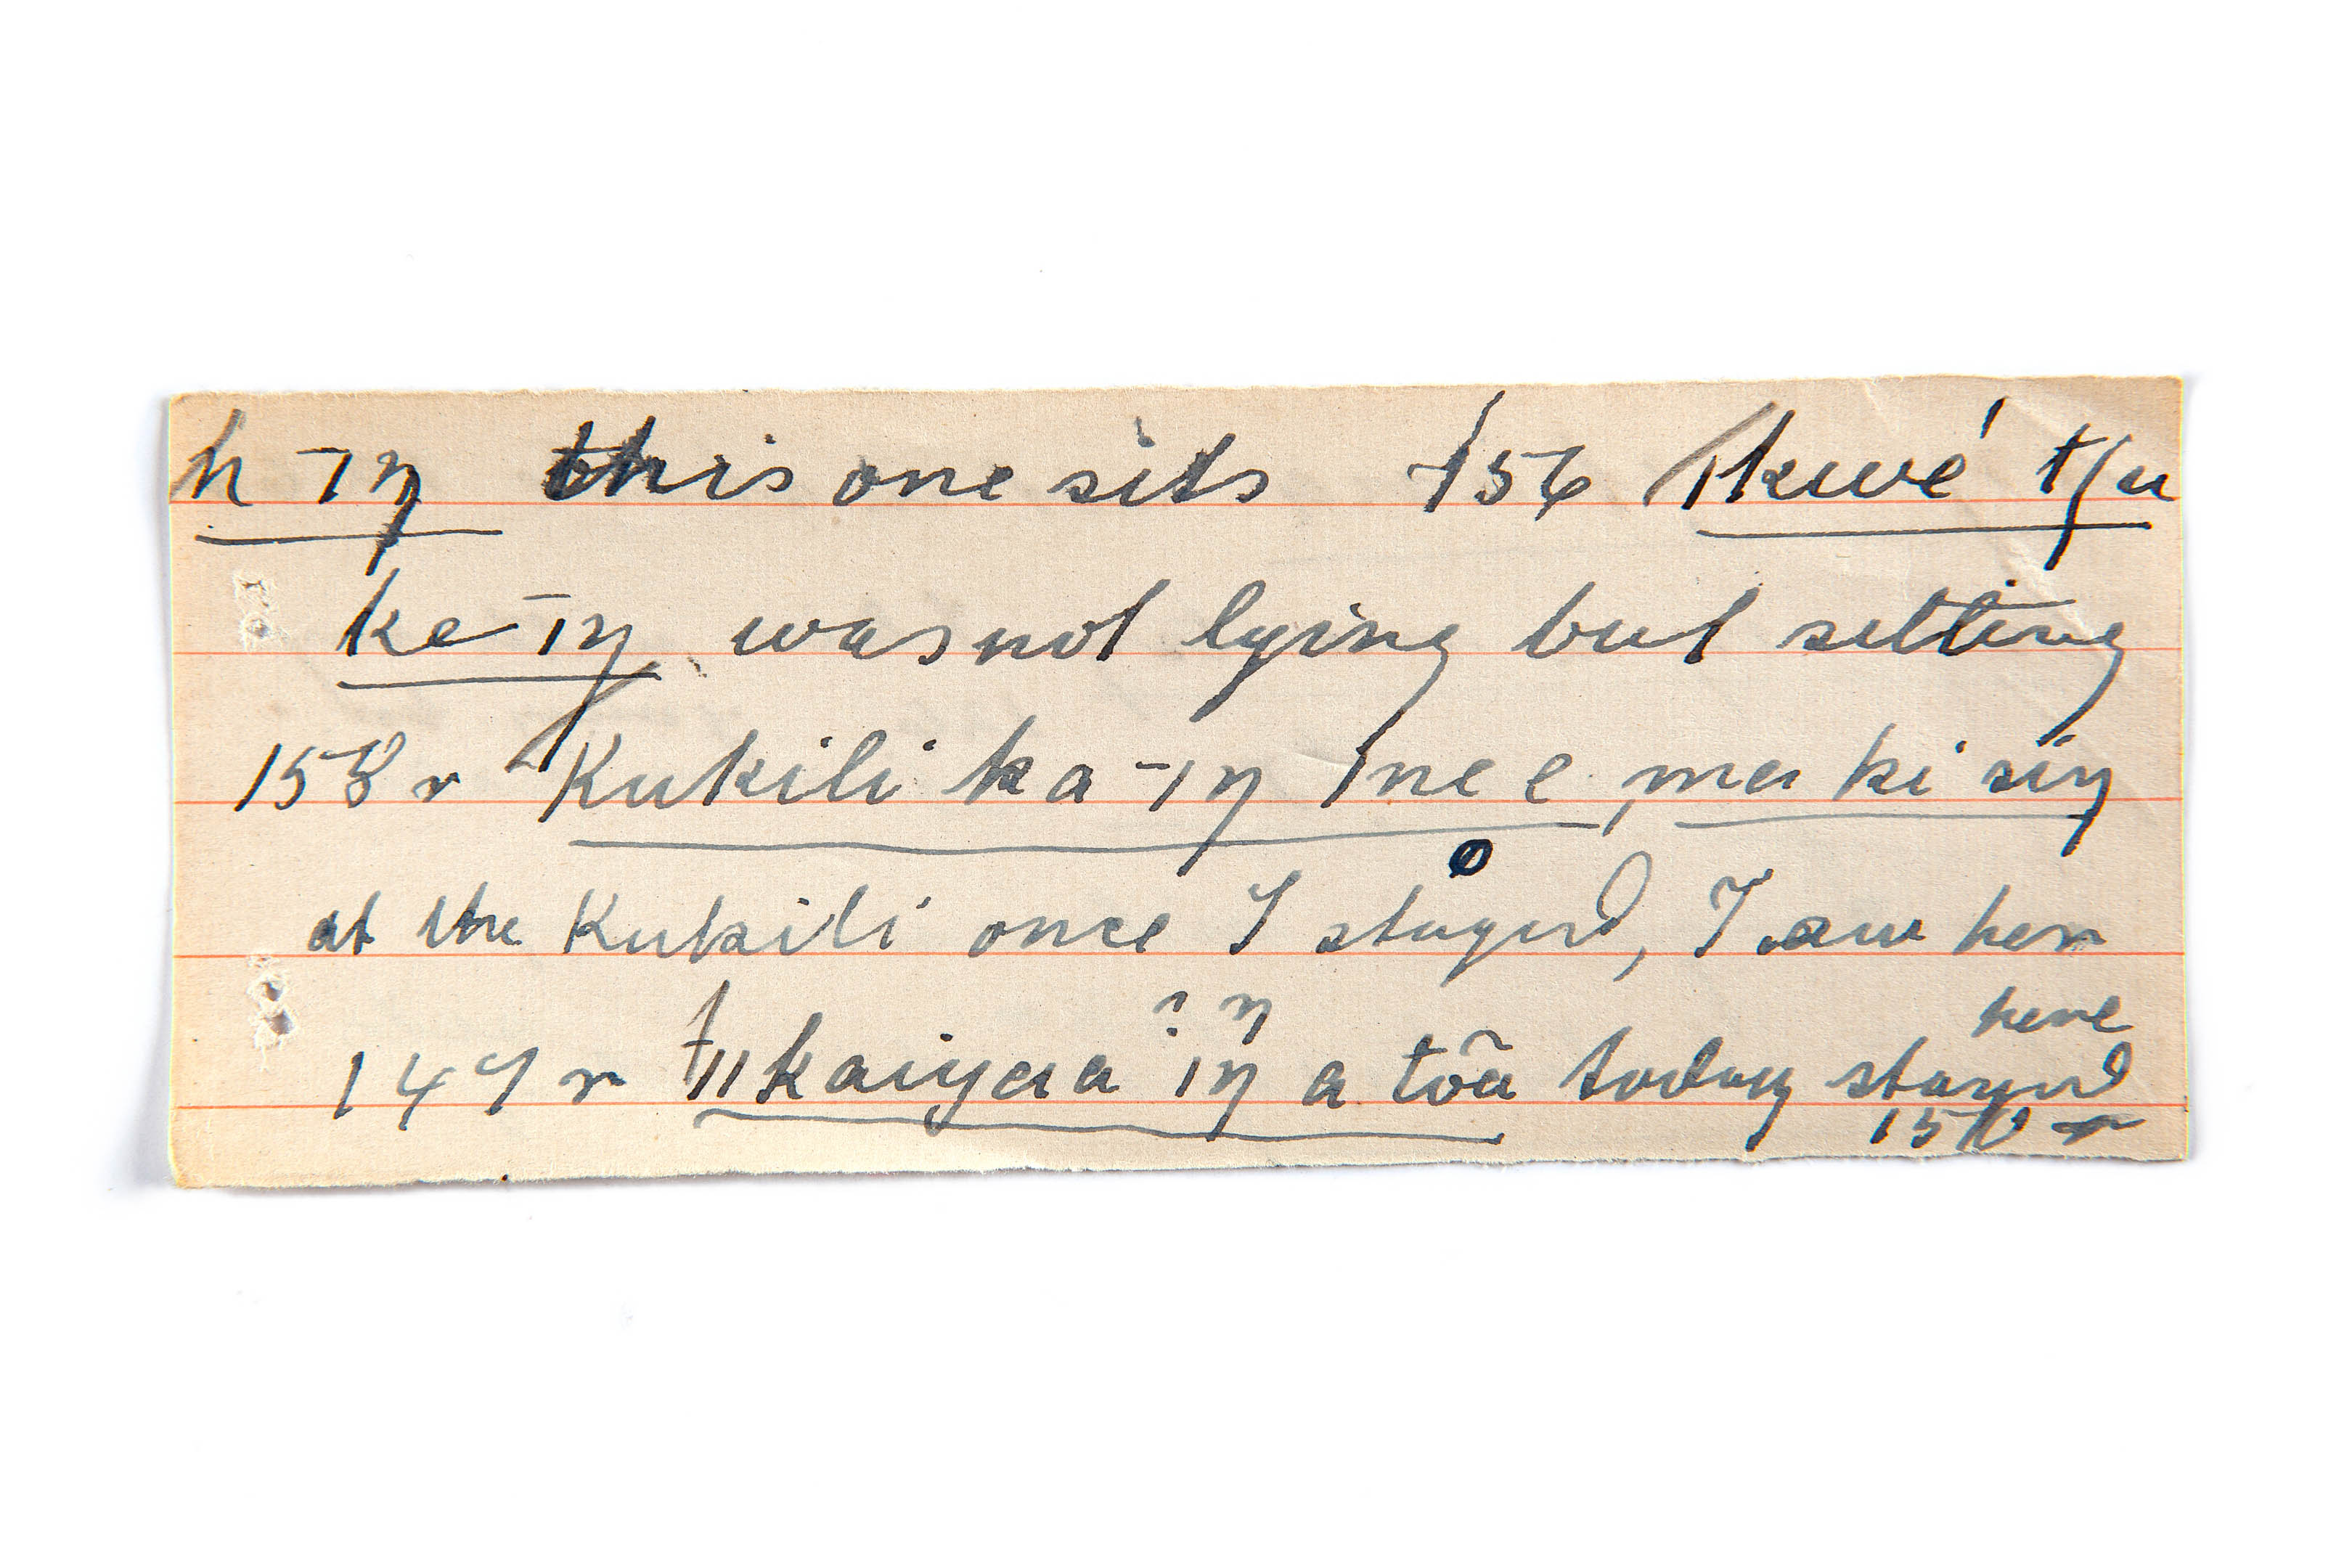 h -ıŋ this one sits 156 ǀkwé tʃu
ke-ıŋ was not lying but sitting
158 r Kukili ka -ıŋ ǀne e, ma ki siŋ
at the Kukili once I stayed, I am her
here
147 r ǁkaiyaa iŋ a tõa today stayed
150 r